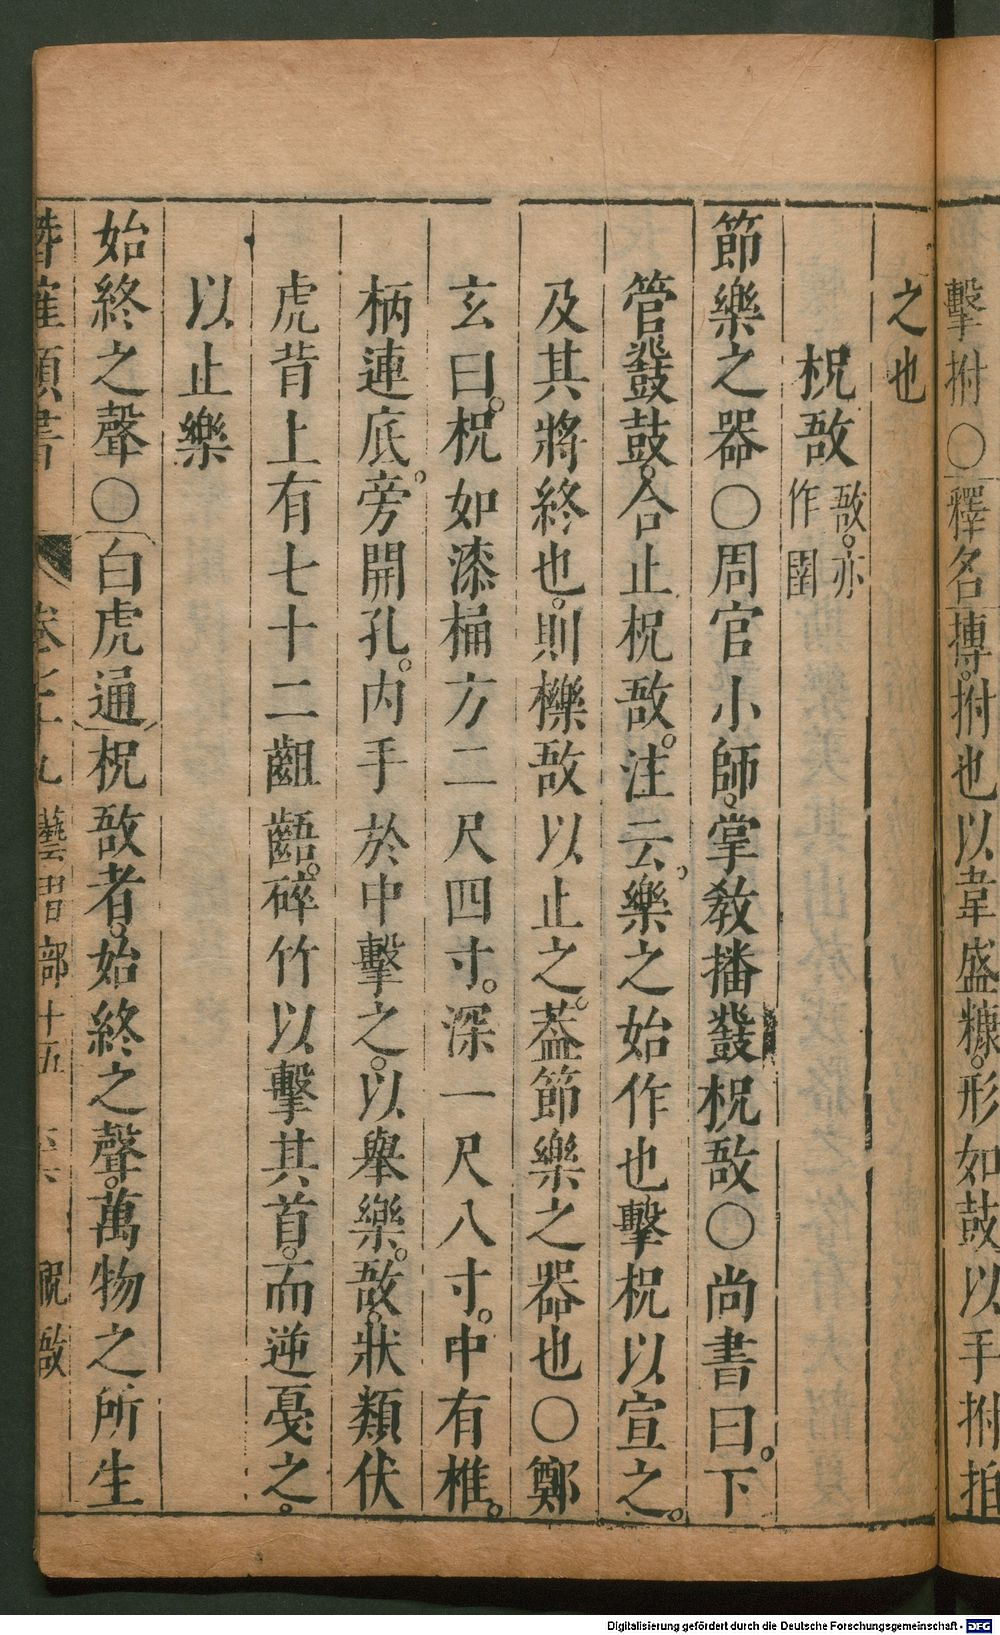 擊拊○釋名搏拊也以韋盛糠形如鼓以手拊拍
之也
柷敔敔亦作圉
節樂之器○周官小師掌教播鼗柷敔○尚書曰下
管鼗鼓合止柷敔注云樂之始作也擊柷以宣之
及其將終也則櫟敔以止之葢節樂之器也○鄭
玄曰柷如漆桶方二尺四寸深一尺八寸中有椎
柄連底旁開孔内手於中擊之以舉樂敔狀類伏
虎背上有七十二齟齬碎竹以擊其首而逆戞之
以止樂
始終之聲○白虎通柷敔者始終之聲萬物之所生
潛確類書 卷七十九 藝習部十五 柷敔
Digitalisierung gefördert durch die Deutsche Forschungsgemeinschaft - DFG